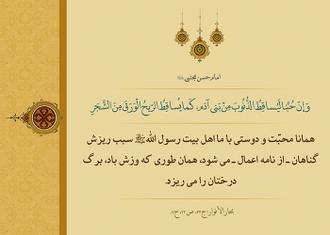 امام حسن مجتبی
وَإِنَّ حُبَّنَا لَيُسَاقِطُ الذُّنُوبَ مِنْ بَنِي آدَمَ، كَمَا يُسَاقِطُ الرِّيحُ الْوَرَقَ مِنَ الشَّجَرِ
همانا محبّت و دوستی با ما اهل بیت رسول اللهﷺ سبب ریزش
گناهان ـ از نامه اعمال ـ می شود، همان طوری که وزش باد، برگ
درختان را می ریزد.
بحارالأنوار: ج۴۴، ص۲۳، ح۷.